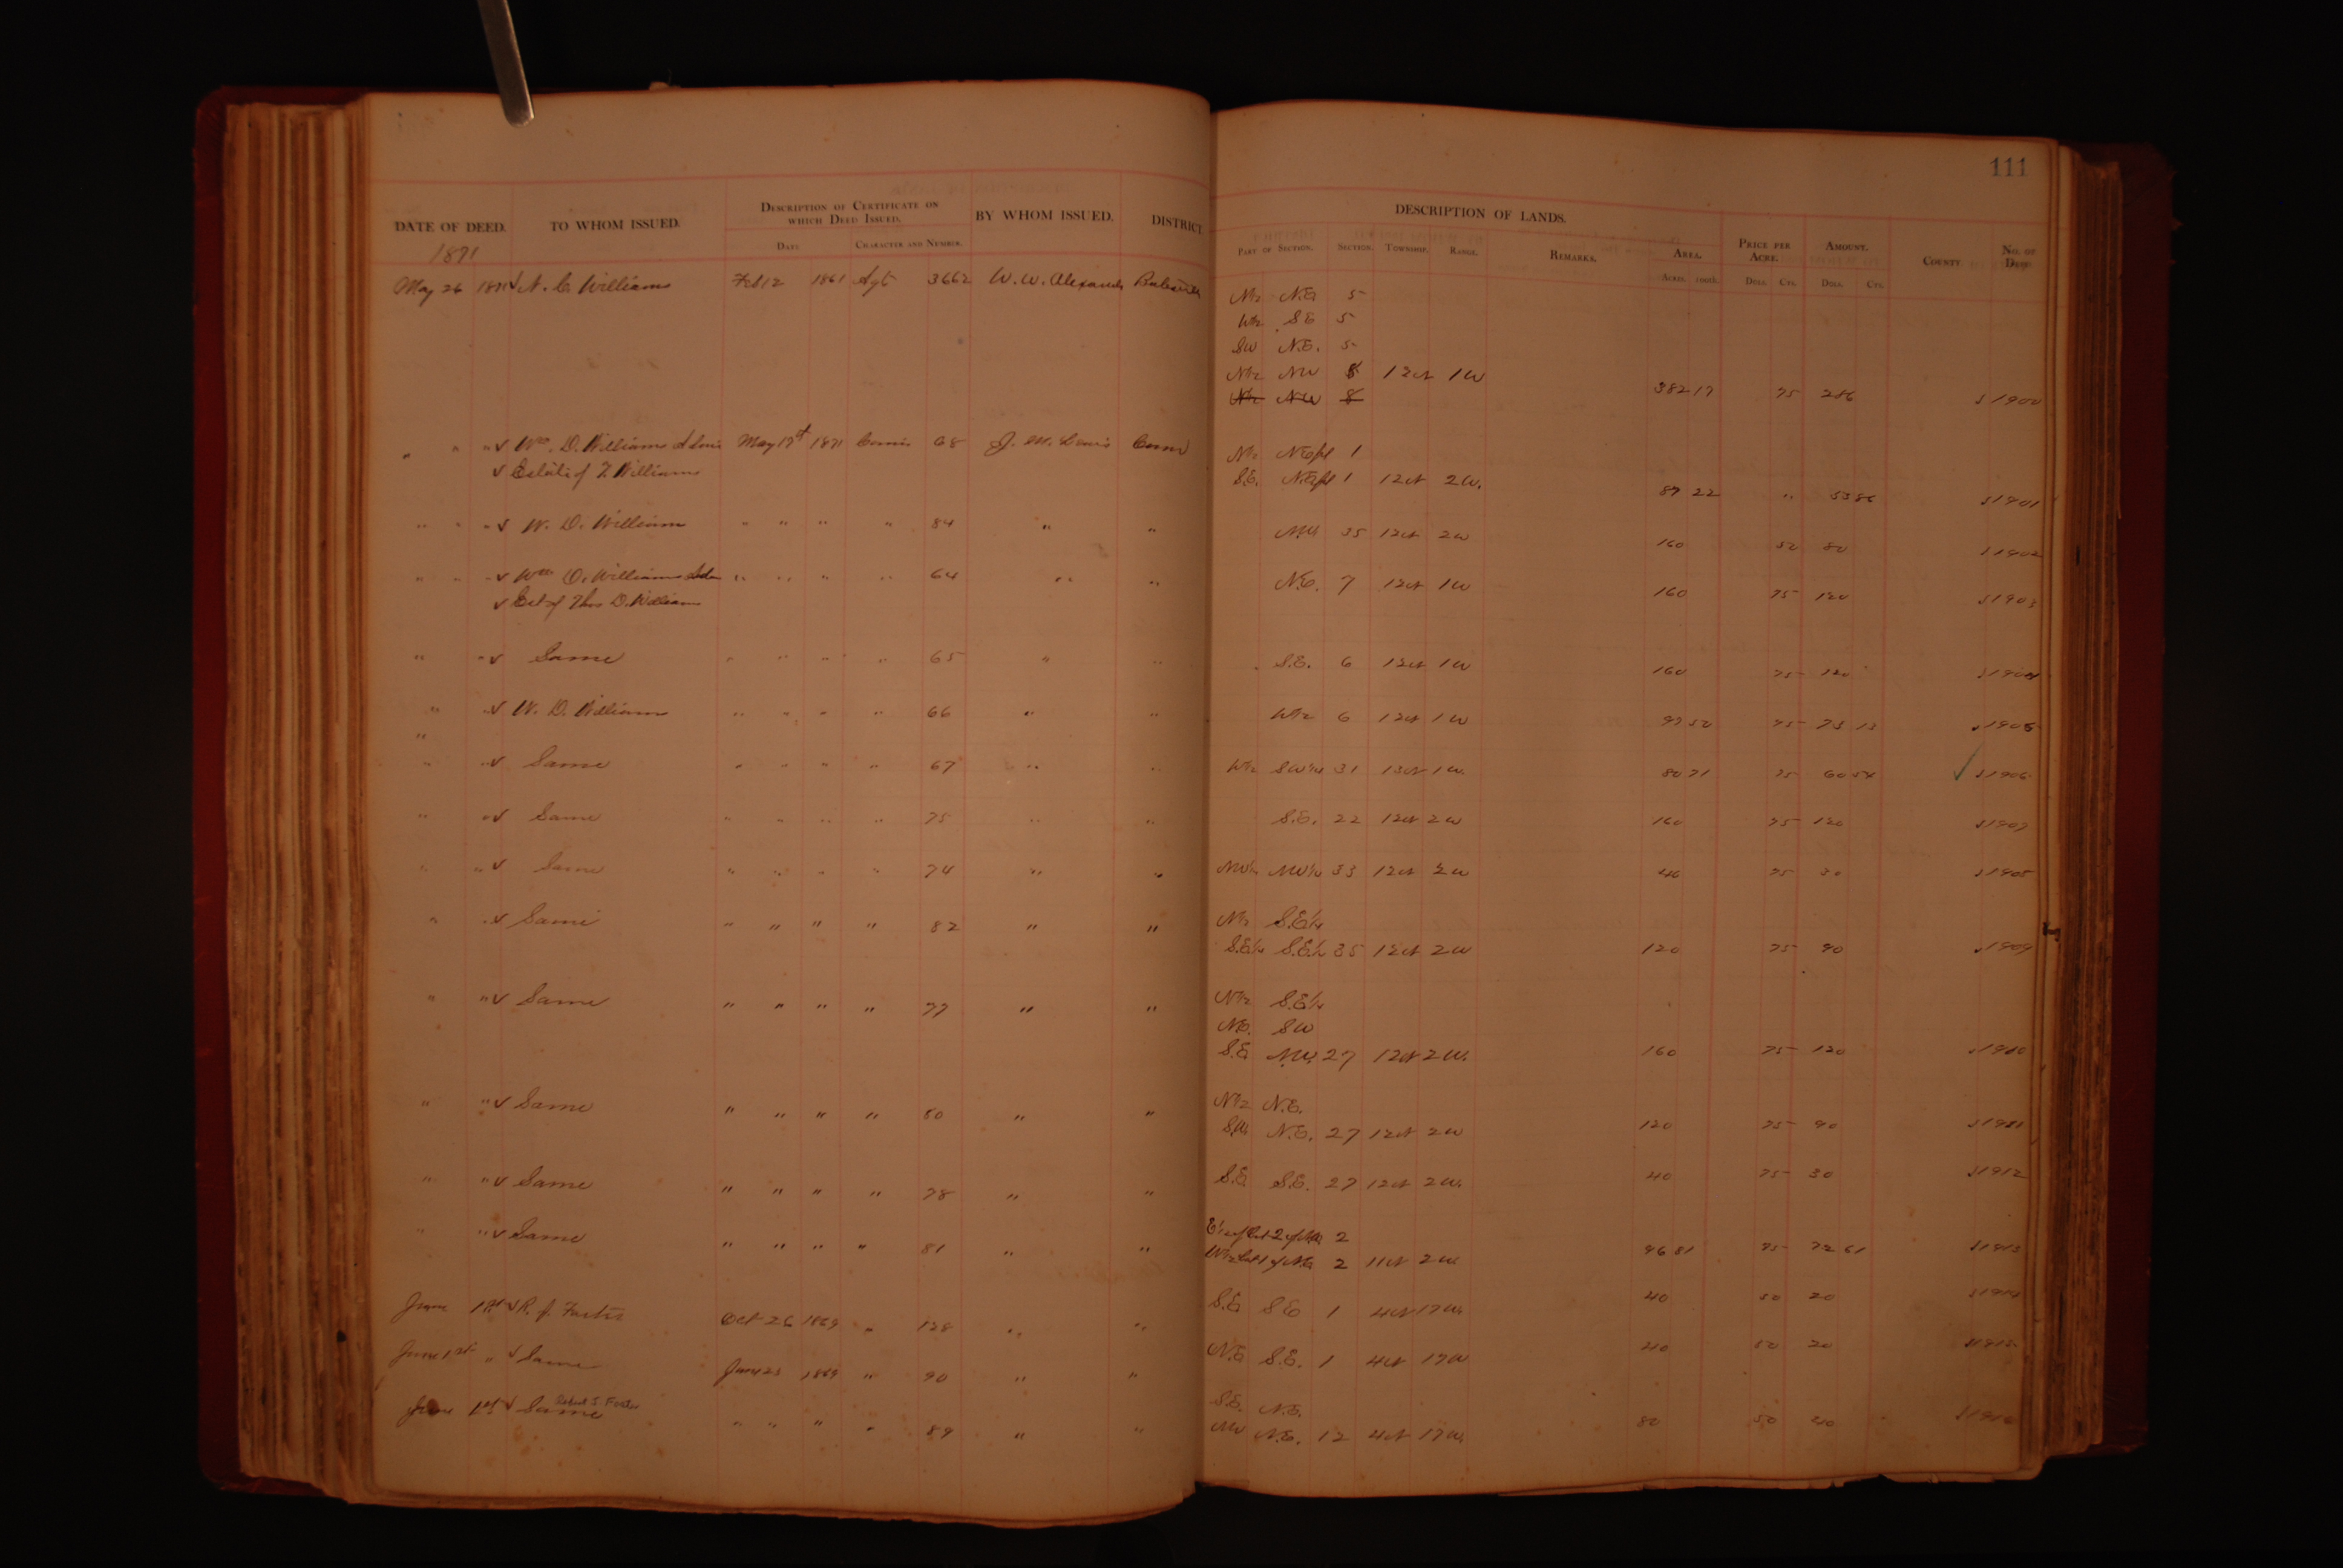 111
DATE OF DEED. TO WHOM ISSUED. DESCRIPTION OF CERTIFICATE ON WHICH DEED ISSUED. BY WHOM ISSUED. DISTRICT. DESCRIPTION OF LANDS. PRICE PER ACRE. AMOUNT. COUNTY NO. OF DEED.
DATE CHARACTER AND NUMBER. PART OF SECTION. SECTION. TOWNSHIP. RANGE. REMARKS. AREA. ACRES. 100th. DOLS. CTS. DOLS. CTS.
1871
May 26 1871 N. C. Williams Feb 12 1861 Agt 3662 W. W. Alexander N½ N.E 5
W½ S E 5
SW N.E. 5
N½ NW 8 12N 1W 382 17 75 286 1900
N½ NW 8
" " " Wm. D. Williams Admr May 17th 1871 Comr 68 J. M. Lewis Comr N½ NEfrl 1
Estate of T. Williams S.E. NEfrl 1 12N 2W. 22 " 1901
" " " W. D. William " " " " 84 " " NW 35 12N 2W 160 50 80 1902
" " " Wm D. Williams Adm " " " " 64 " " N.E. 7 12N 1W 160 75 120 1903
Est of Thos D. Williams
" " Same " " " " 65 " " S.E. 6 12N 1W 160 75 120 1904
" " W. D. William " " " " 66 " " W½ 6 12N 1W 75 73 13 1905
"
" " Same " " " " 67 " " W½ SW¼ 31 13N 1W. 80 71 75 60 54 1906
" " Same " " " " 75 " " S.E. 22 12N 2W 160 75 120 1907
" " Same " " " " 74 " " NW¼ NW¼ 33 12N 2W 40 75 30
" " Same " " " " 82 " " N½ S.E¼
S.E¼ S.E.¼ 35 12N 2W 120 75 90 1909
" " Same " " " " 77 " " N½ S.E¼
NE. SW
S.E NW. 27 12N 2W. 160 75 120 1910
" " Same " " " " 80 " " N½ N.E.
S.W. N.E. 27 12N 2W 120 75 90 1911
" " Same " " " " 78 " " S.E S.E. 27 12N 2W. 40 75 30 1912
" " Same " " " " 81 " " E½ of Lot 2 of NW 2
W½ Lot 1 of N.E 2 11N 2W 96 81 75 72 61 1913
June 1st R. J. Oct 26 1869 " 128 " " S.E SE 1 4N 17W. 40 50 20 1914
June 1st " Same 1869 " 90 " " N.E S.E. 1 4N 17W 40 50 20
June 1st Same " " " " 89 " " S.E. N.E.
NW N.E. 12 4N 17W. 80 50 40 1916